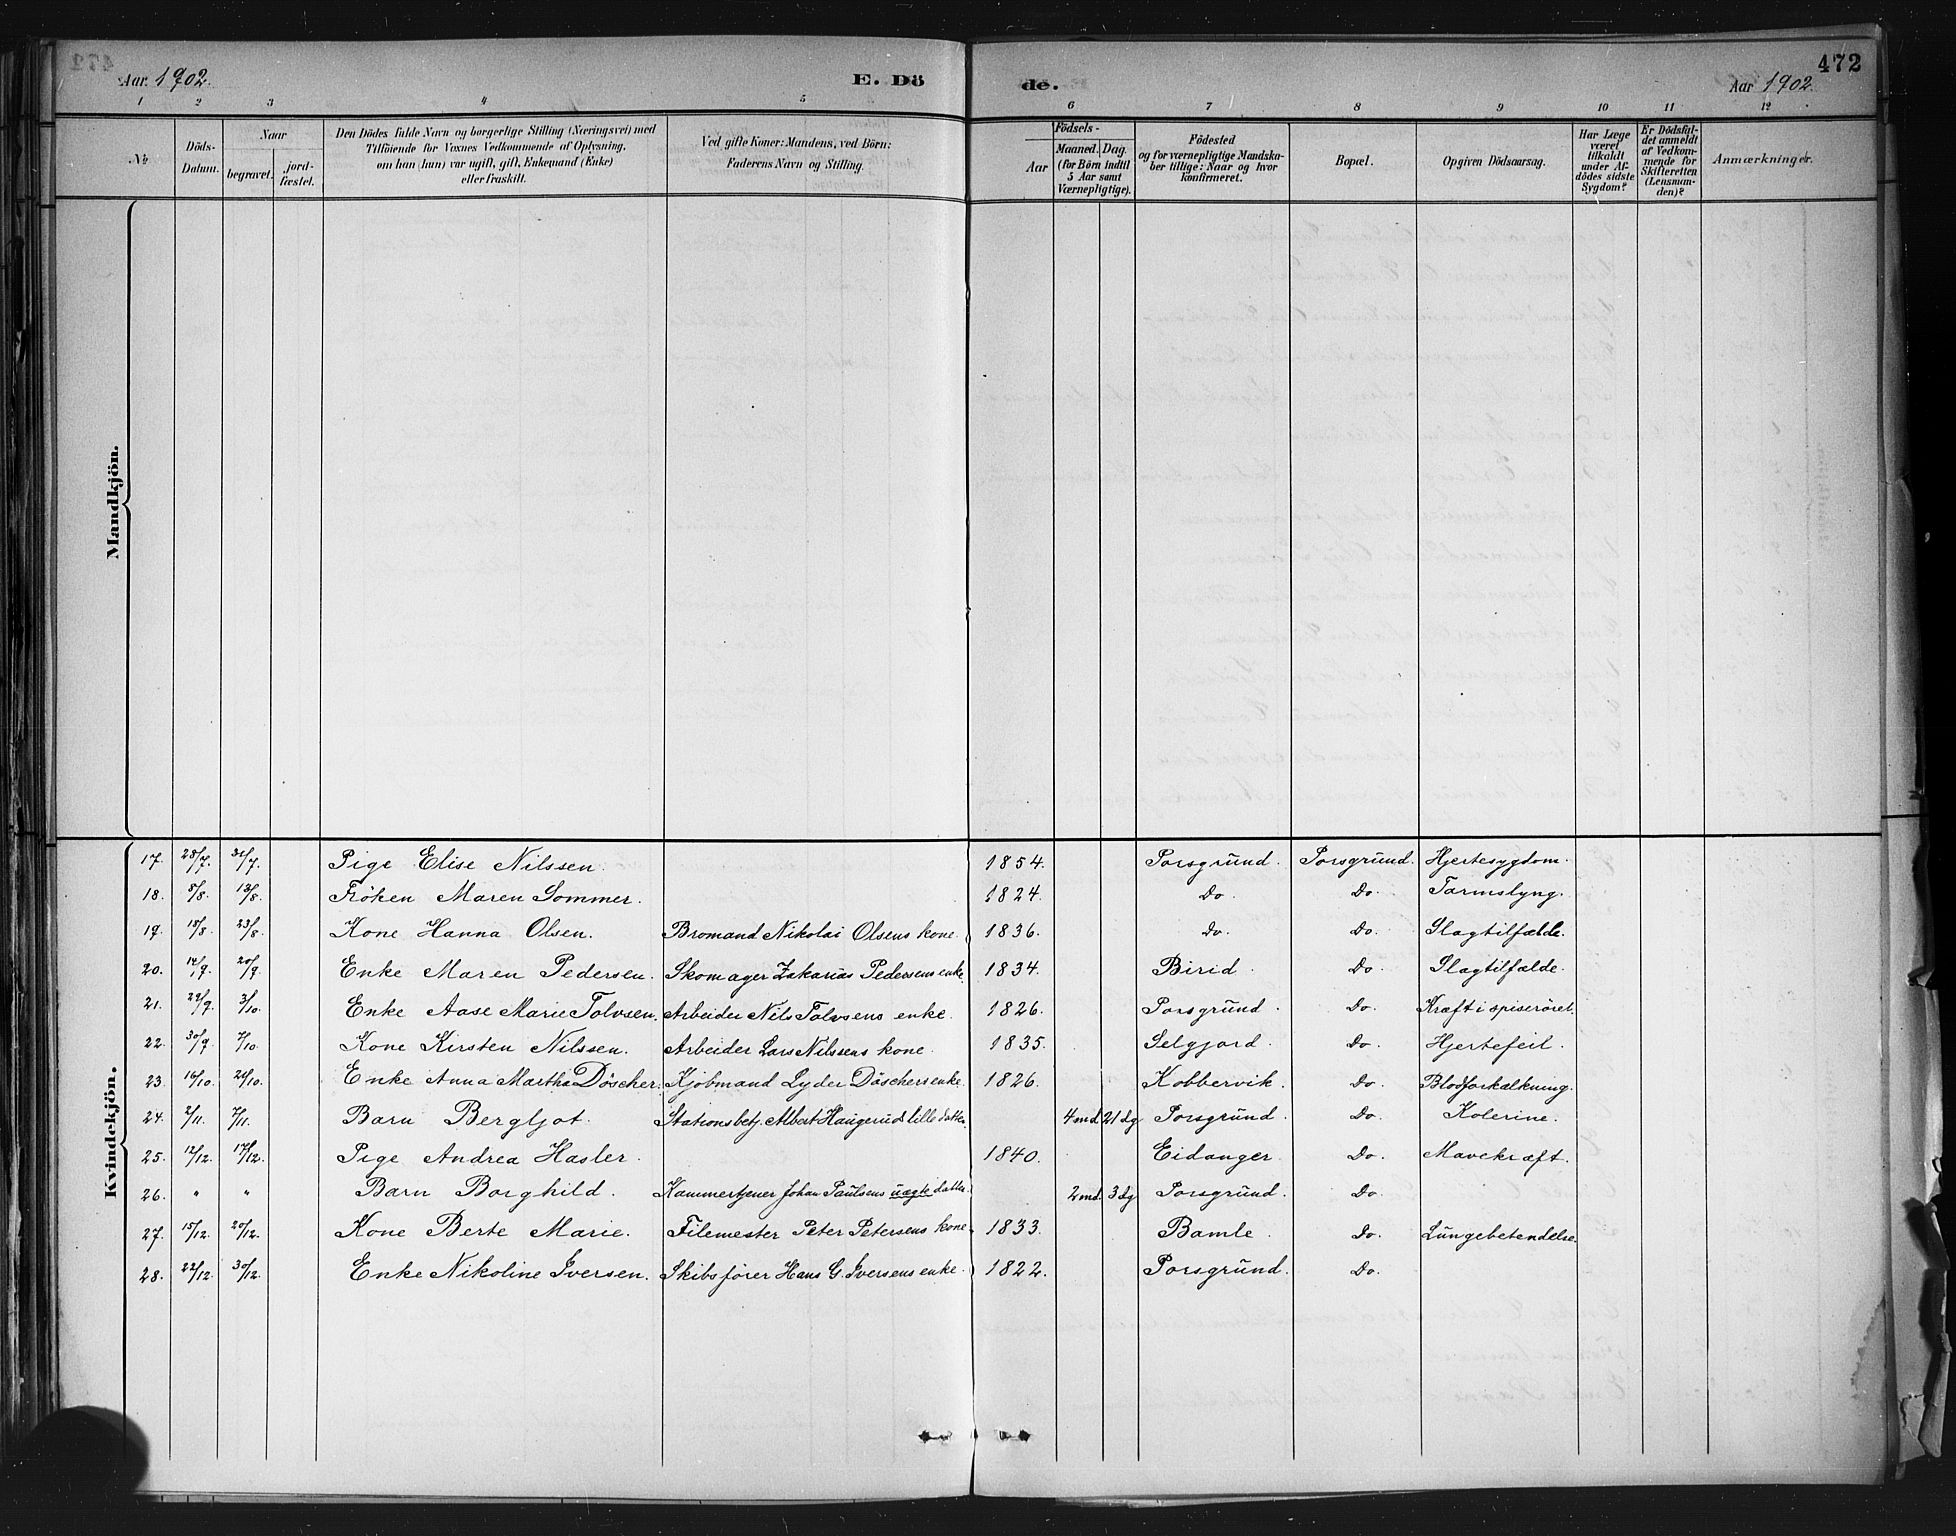 472
Aar. 1902. E. Dö de. Aar 1902.
1 2 3 4 5 6 7 8 9 10 11 12
No.
Döds-Datum.
Naar
begravet. jord-fæstet.
Den Dödes fulde Navn og borgerlige Stilling (Næringsvei) med
Tilföiende for Voxnes Vedkommende af Oplysning,
om han (hun) var ugift, gift, Enkemand (Enke)
eller fraskilt.
Ved gifte Koner: Mandens, ved Börn:
Faderens Navn og Stilling.
Födsels-
Aar
Maaned. Dag.
(for Börn indtil
5 Aar samt
Værnepligtige).
Födested
og for værnepligtige Mandska-
ber tillige: Naar og hvor
konfirmeret.
Bopæl.
Opgiven Dödsaarsag.
Har Læge
været
tilkaldt
under Af-
dödes sidste
Sygdom?
Er Dödsfal-
det anmeldt
af Vedkom-
mende for
Skifteretten
(Lensman-
den)?
Anmærkninger.
Mandkjön.
Kvindekjön.
17. 28/7. 31/7. Pige Elise Nilssen. 1854. Porsgrund. Porsgrund. Hjertesygdom.
18. 8/8. 13/8. Fröken Maren Sommer. 1824. Do. Do. Tarmslyng.
19. 18/8. 23/8. Kone Hanna Olsen. Bromand Nikolai Olsens kone. 1836. Do. Do. Slagtilfælde.
20. 14/9. 20/9. Enke Maren Pedersen. Skomager Zakarias Pedersens enke. 1834. Birid. Do. Slagtilfælde.
21. 29/9. 3/10. Enke Aase Marie Tolvsen. Arbeider Nils Tolvsens enke. 1826. Porsgrund. Do. Kræft i spiseröret.
22. 30/9. 7/10. Kone Kirsten Nilssen. Arbeider Lars Nilssens kone. 1835. Selgjord. Do. Hjertefeil.
23. 16/10. 21/10. Enke Anna Martha Döscher. Kjöbmand Lyder Döschers enke. 1826. Kobbervik. Do. Blodforkalkning.
24. 2/11. 7/11. Barn Bergljot. Stationsbetj. Albert Haugeruds lille datter. 4 md. 21 dg Porsgrund. Do. Kolerine.
25. 12/12. 17/12. Pige Andrea Hasler. 1840. Eidanger. Do. Mavekræft.
26. " " Barn Borghild. Kammertjener Johan Paulsens uægte datter. 2 md. 3 dg Porsgrund. Do.
27. 15/12. 20/12. Kone Berte Marie. Filemester Peter Petersens kone. 1833. Bamle. Do. Lungebetendelse.
28. 22/12. 30/12. Enke Nikoline Iversen. Skibsförer Hans G. Iversens enke. 1822. Porsgrund. Do.